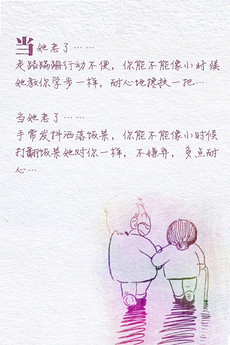 当她老了……
走路蹒跚行动不便，你能不能像小时候
她教你学步一样，耐心地搀扶一把…
当她老了……
手常发抖洒落饭菜，你能不能像小时候
打翻饭菜她对你一样，不嫌弃，多点耐
心…